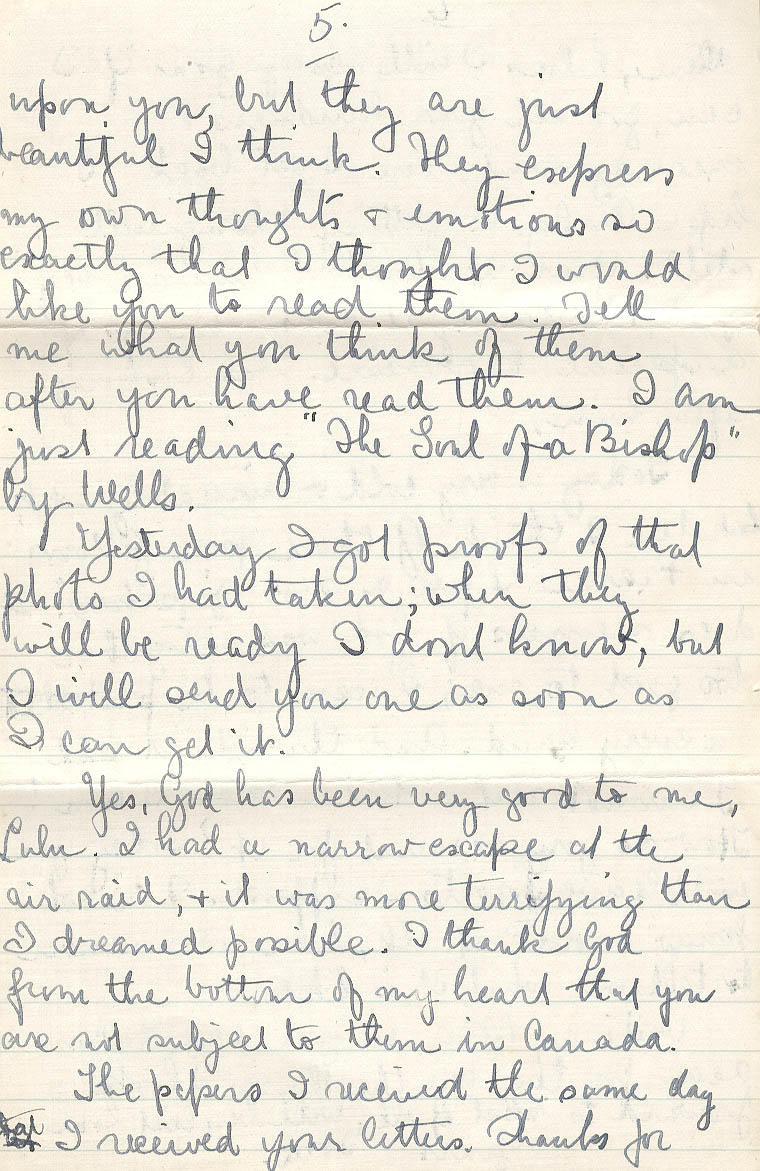 5.
upon you, but they are just
beautiful I think. They express
my own thoughts & emotions so
exactly that I thought I would
like you to read them. Tell
me what you think of them
after you have read them. I am
just reading "The Soul of a Bishop"
by Wells.
Yesterday I got proofs of that
photo I had taken; when they
will be ready I dont know, but
I will send you one as soon as
I can get it.
Yes, God has been very good to me,
Lulu. I had a narrow escape at the
air raid, & it was more terrifying than
I dreamed possible. I thank God
from the bottom of my heart that you
are not subject to them in Canada.
The papers I received the same day
I received your letters. Thanks for